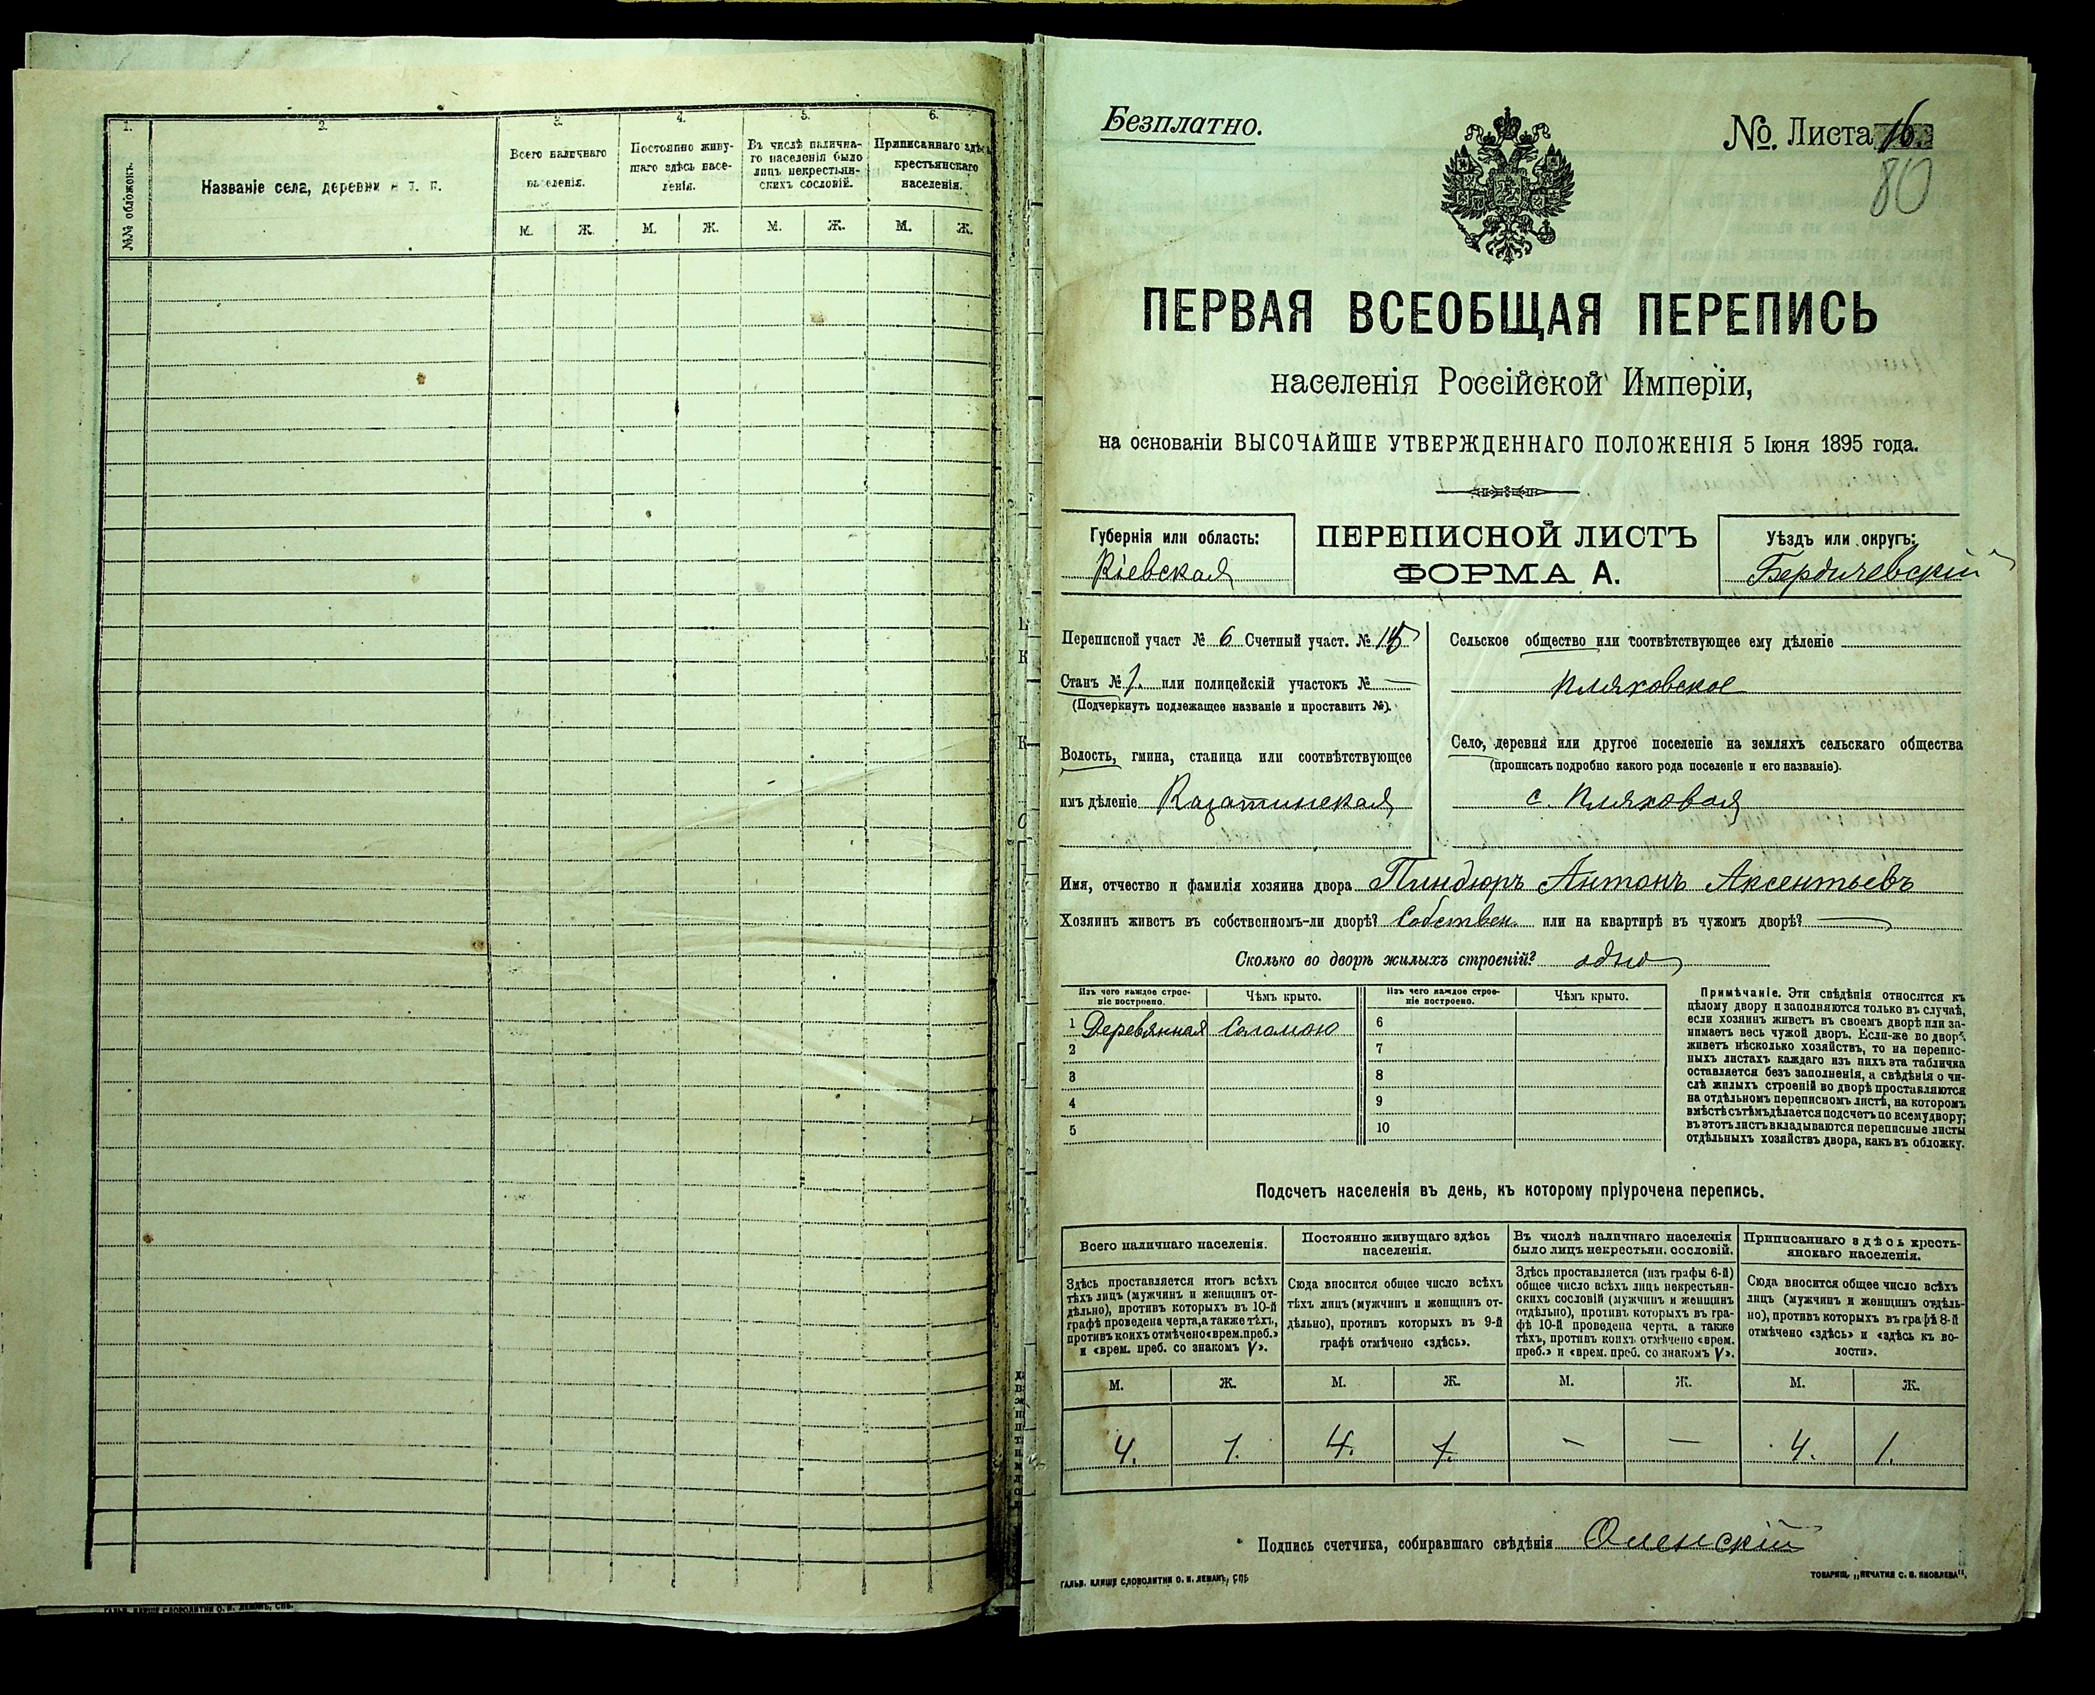 1. 2. 3. 4. 5. 6.
№№ обложекъ.
Названіе села, деревни и т. п.
Всего наличнаго населенія.
Постоянно живу-
щаго здѣсь насе-
ленія.
Въ числѣ налична-
го населенія было
лицъ некрестьян-
скихъ сословій.
Приписаннаго здѣсь
крестьянскаго
населенія.
М. Ж. М. Ж. М. Ж. М. Ж.
ГАЛЬВ. КЛИШЕ СЛОВОЛИТНИ О. И. ЛЕМАНЪ, СПБ.
Безплатно.
№. Листа 16.
80
ПЕРВАЯ ВСЕОБЩАЯ ПЕРЕПИСЬ
населенія Россійской Имперіи,
на основаніи ВЫСОЧАЙШЕ УТВЕРЖДЕННАГО ПОЛОЖЕНІЯ 5 Іюня 1895 года.
Губернія или область:
Кіевская
ПЕРЕПИСНОЙ ЛИСТЪ
ФОРМА А.
Уѣздъ или округъ:
Бердичевскій
Переписной участ № 6 Счетный участ. №
Станъ № 1. или полицейскій участокъ № —
(Подчеркнуть подлежащее названіе и проставить №).
Волость, гмина, станица или соотвѣтствующее
имъ дѣленіе Казатинская
Сельское общество или соотвѣтствующее ему дѣленіе
Пляховское
Село, деревня или другое поселеніе на земляхъ сельскаго общества
(прописать подробно какого рода поселеніе и его названіе).
с. Пляховая
Имя, отчество и фамилія хозяина двора Пиндюръ Антонъ Аксентьевъ
Хозяинъ живетъ въ собственномъ-ли дворѣ? Собствен. или на квартирѣ въ чужомъ дворѣ? —
Сколько во дворѣ жилыхъ строеній? одно
Изъ чего каждое строе-
ніе построено.
Чѣмъ крыто.
Изъ чего каждое строе-
ніе построено.
Чѣмъ крыто.
1 Деревянная Соломою 6
2 7
3 8
4 9
5 10
Примѣчаніе. Эти свѣдѣнія относятся къ
цѣлому двору и заполняются только въ случаѣ,
если хозяинъ живетъ въ своемъ дворѣ или за-
нимаетъ весь чужой дворъ. Если-же во дворѣ
живетъ нѣсколько хозяйствъ, то на перепис-
ныхъ листахъ каждаго изъ нихъ эта табличка
оставляется безъ заполненія, а свѣдѣнія о чи-
слѣ жилыхъ строеній во дворѣ проставляются
на отдѣльномъ переписномъ листѣ, на которомъ
вмѣстѣ съ тѣмъ дѣлается подсчетъ по всему двору;
въ этотъ листъ вкладываются переписные листы
отдѣльныхъ хозяйствъ двора, какъ въ обложку.
Подсчетъ населенія въ день, къ которому пріурочена перепись.
Всего наличнаго населенія.
Здѣсь проставляется итогъ всѣхъ
тѣхъ лицъ (мужчинъ и женщинъ от-
дѣльно), противъ которыхъ въ 10-й
графѣ проведена черта, а также тѣхъ,
противъ коихъ отмѣчено «врем. преб.»
и «врем. преб. со знакомъ V».
Постоянно живущаго здѣсь
населенія.
Сюда вносится общее число всѣхъ
тѣхъ лицъ (мужчинъ и женщинъ от-
дѣльно), противъ которыхъ въ 9-й
графѣ отмѣчено «здѣсь».
Въ числѣ наличнаго населенія
было лицъ некрестьян. сословій.
Здѣсь проставляется (изъ графы 6-й)
общее число всѣхъ лицъ некрестьян-
скихъ сословій (мужчинъ и женщинъ
отдѣльно), противъ которыхъ въ гра-
фѣ 10-й проведена черта, а также
тѣхъ, противъ коихъ отмѣчено «врем.
преб.» и «врем. преб. со знакомъ V».
Приписаннаго здѣсь кресть-
янскаго населенія.
Сюда вносится общее число всѣхъ
лицъ (мужчинъ и женщинъ отдѣль-
но), противъ которыхъ въ графѣ 8-й
отмѣчено «здѣсь» и «здѣсь къ во-
лости».
М. Ж. М. Ж. М. Ж. М. Ж.
4. 1. 4. 1. — — 4. 1.
Подпись счетчика, собиравшаго свѣдѣнія Оленскій
ГАЛЬВ. КЛИШЕ СЛОВОЛИТНИ О. И. ЛЕМАНЪ, СПБ
ТОВАРИЩ. „ПЕЧАТНЯ С. П. ЯКОВЛЕВА".